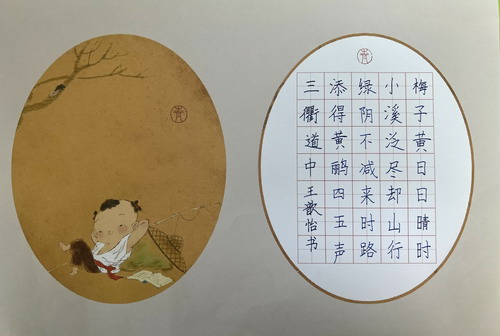 梅子黄日日晴时
小溪泛尽却山行
绿阴不减来时路
添得黄鹂四五声
三衢道中 王歆怡书